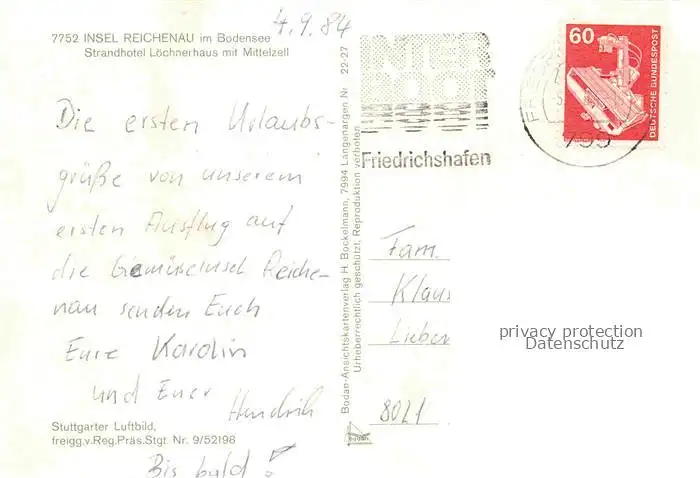 4.9.84
7752 INSEL REICHENAU im Bodensee
Strandhotel Löchnerhaus mit Mittelzell
Die ersten Urlaubs-
grüße von unserem
ersten Ausflug auf
die Gemüseinsel Reiche-
nau senden Euch
Eure Karolin
und Euer
Hendrik
Bis bald!
Stuttgarter Luftbild,
freigg.v.Reg.Präs.Stgt. Nr. 9/52198
Bodan-Ansichtskartenverlag H. Bockelmann, 7994 Langenargen Nr. 22-27
Urheberrechtlich geschützt, Reproduktion verboten
INTER
BOOT
Friedrichshafen
60
DEUTSCHE BUNDESPOST
799
Fam.
Klaus
Lieber
8021
privacy protection
Datenschutz